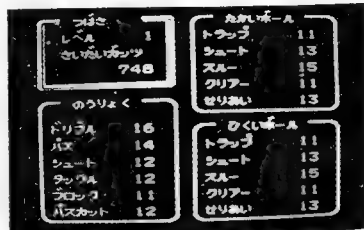 つばさ
レベル 1
さいだいガッツ
748
のうりょく
ドリブル 16
パス 14
シュート 12
タックル 12
ブロック 11
パスカット 12
たかいボール
トラップ 11
シュート 13
スルー 15
クリアー 11
せりあい 13
ひくいボール
トラップ 11
シュート 13
スルー 15
クリアー 11
せりあい 13